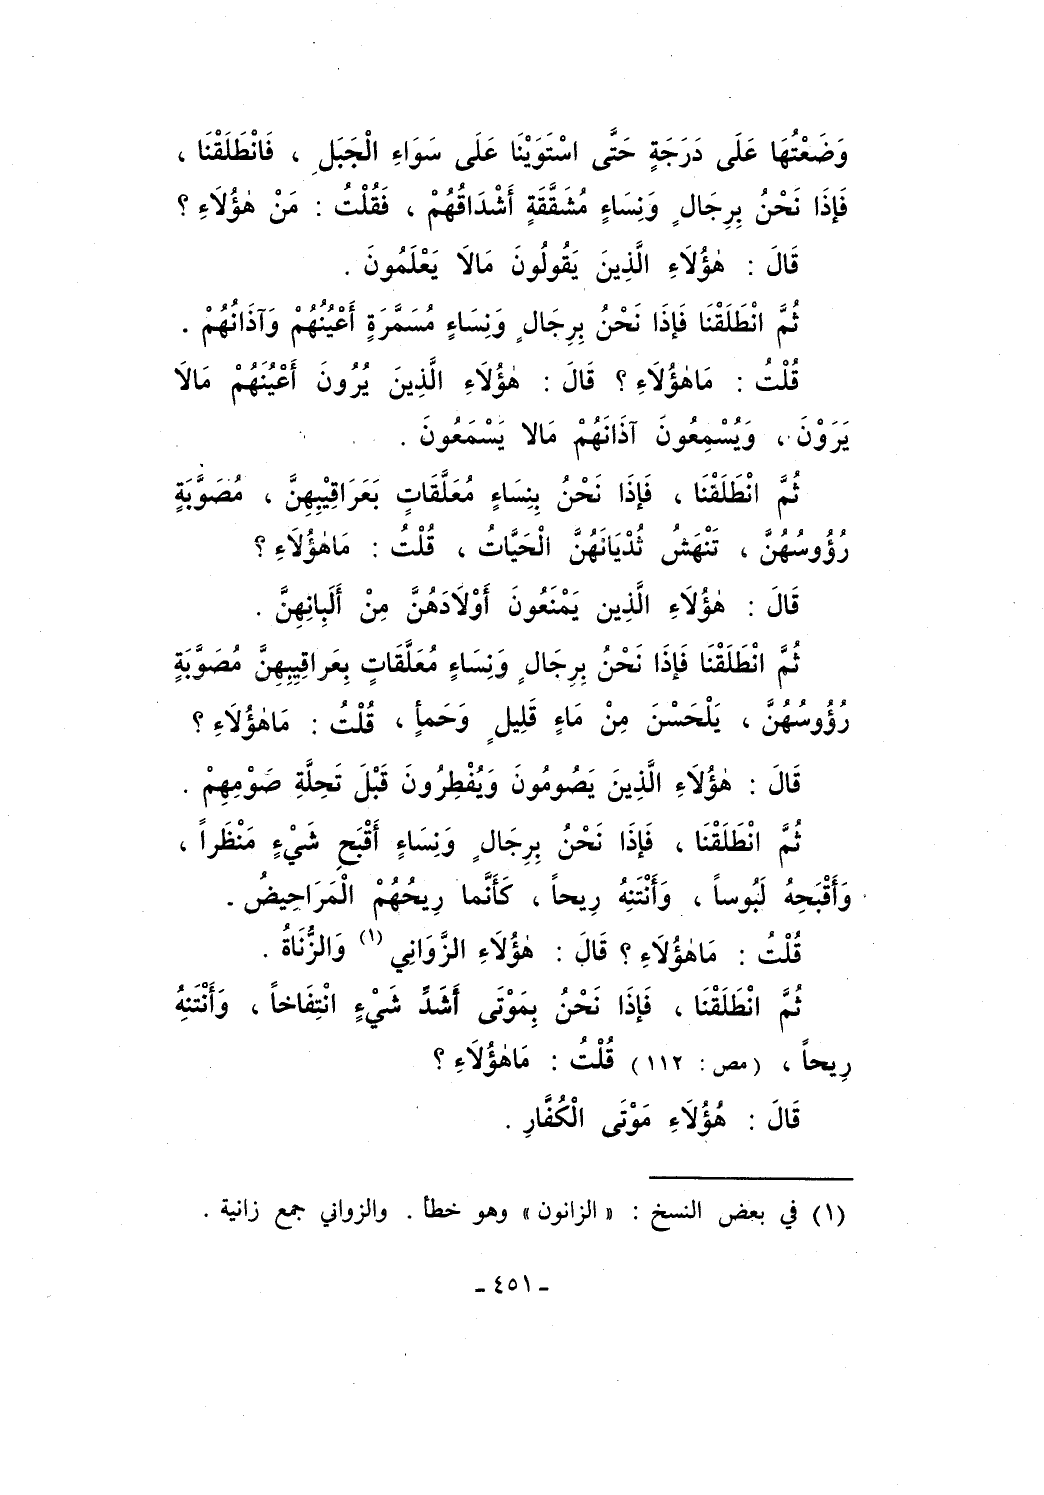 وَضَعْتُهَا عَلَى دَرَجَةٍ حَتَّى اسْتَوَيْنَا عَلَى سَوَاءِ الْجَبَلِ ، فَانْطَلَقْنَا ،
فَإِذَا نَحْنُ بِرِجَالٍ وَنِسَاءٍ مُشَقَّقَةٍ أَشْدَاقُهُمْ ، فَقُلْتُ : مَنْ هٰؤُلَاءِ ؟
قَالَ : هٰؤُلَاءِ الَّذِينَ يَقُولُونَ مَالَا يَعْلَمُونَ .
ثُمَّ انْطَلَقْنَا فَإِذَا نَحْنُ بِرِجَالٍ وَنِسَاءٍ مُسَمَّرَةٍ أَعْيُنُهُمْ وَآذَانُهُمْ .
قُلْتُ : مَاهٰؤُلَاءِ ؟ قَالَ : هٰؤُلَاءِ الَّذِينَ يُرُونَ أَعْيُنَهُمْ مَالَا
يَرَوْنَ ، وَيُسْمِعُونَ آذَانَهُمْ مَالا يَسْمَعُونَ .
ثُمَّ انْطَلَقْنَا ، فَإِذَا نَحْنُ بِنِسَاءٍ مُعَلَّقَاتٍ بَعَرَاقِيْبِهِنَّ ، مُصَوَّبَةٍ
رُؤُوسُهُنَّ ، تَنْهَشُ ثُدْيَانَهُنَّ الْحَيَّاتُ ، قُلْتُ : مَاهٰؤُلَاءِ ؟
قَالَ : هٰؤُلَاءِ الَّذِين يَمْنَعُونَ أَوْلَادَهُنَّ مِنْ أَلْبَانِهِنَّ .
ثُمَّ انْطَلَقْنَا فَإِذَا نَحْنُ بِرِجَالٍ وَنِسَاءٍ مُعَلَّقَاتٍ بِعَراقِيِبِهِنَّ مُصَوَّبَةٍ
رُؤُوسُهُنَّ ، يَلْحَسْنَ مِنْ مَاءٍ قَلِيلٍ وَحَمأٍ ، قُلْتُ : مَاهٰؤُلَاءِ ؟
قَالَ : هٰؤُلَاءِ الَّذِينَ يَصُومُونَ وَيُفْطِرُونَ قَبْلَ تَحِلَّةِ صَوْمِهِمْ .
ثُمَّ انْطَلَقْنَا ، فَإِذَا نَحْنُ بِرِجَالٍ وَنِسَاءٍ أَقْبَحِ شَيْءٍ مَنْظَراً ،
وَأَقْبَحِهُ لَبُوساً ، وَأَنْتَنِهُ رِيحاً ، كَأَنَّما رِيحُهُمْ الْمَرَاحِيضُ .
قُلْتُ : مَاهٰؤُلَاءِ ؟ قَالَ : هٰؤُلَاءِ الزَّوَانِي (١) وَالزُّنَاةُ .
ثُمَّ انْطَلَقْنَا ، فَإِذَا نَحْنُ بِمَوْتَى أَشَدَّ شَيْءٍ انْتِفَاخاً ، وَأَنْتَنِهُ
رِيحاً ، (مص : ١١٢) قُلْتُ : مَاهٰؤُلَاءِ ؟
قَالَ : هُؤُلَاءِ مَوْتَى الْكُفَّارِ .
(١) في بعض النسخ : « الزانون » وهو خطأ . والزواني جمع زانية .
ـ ٤٥١ ـ